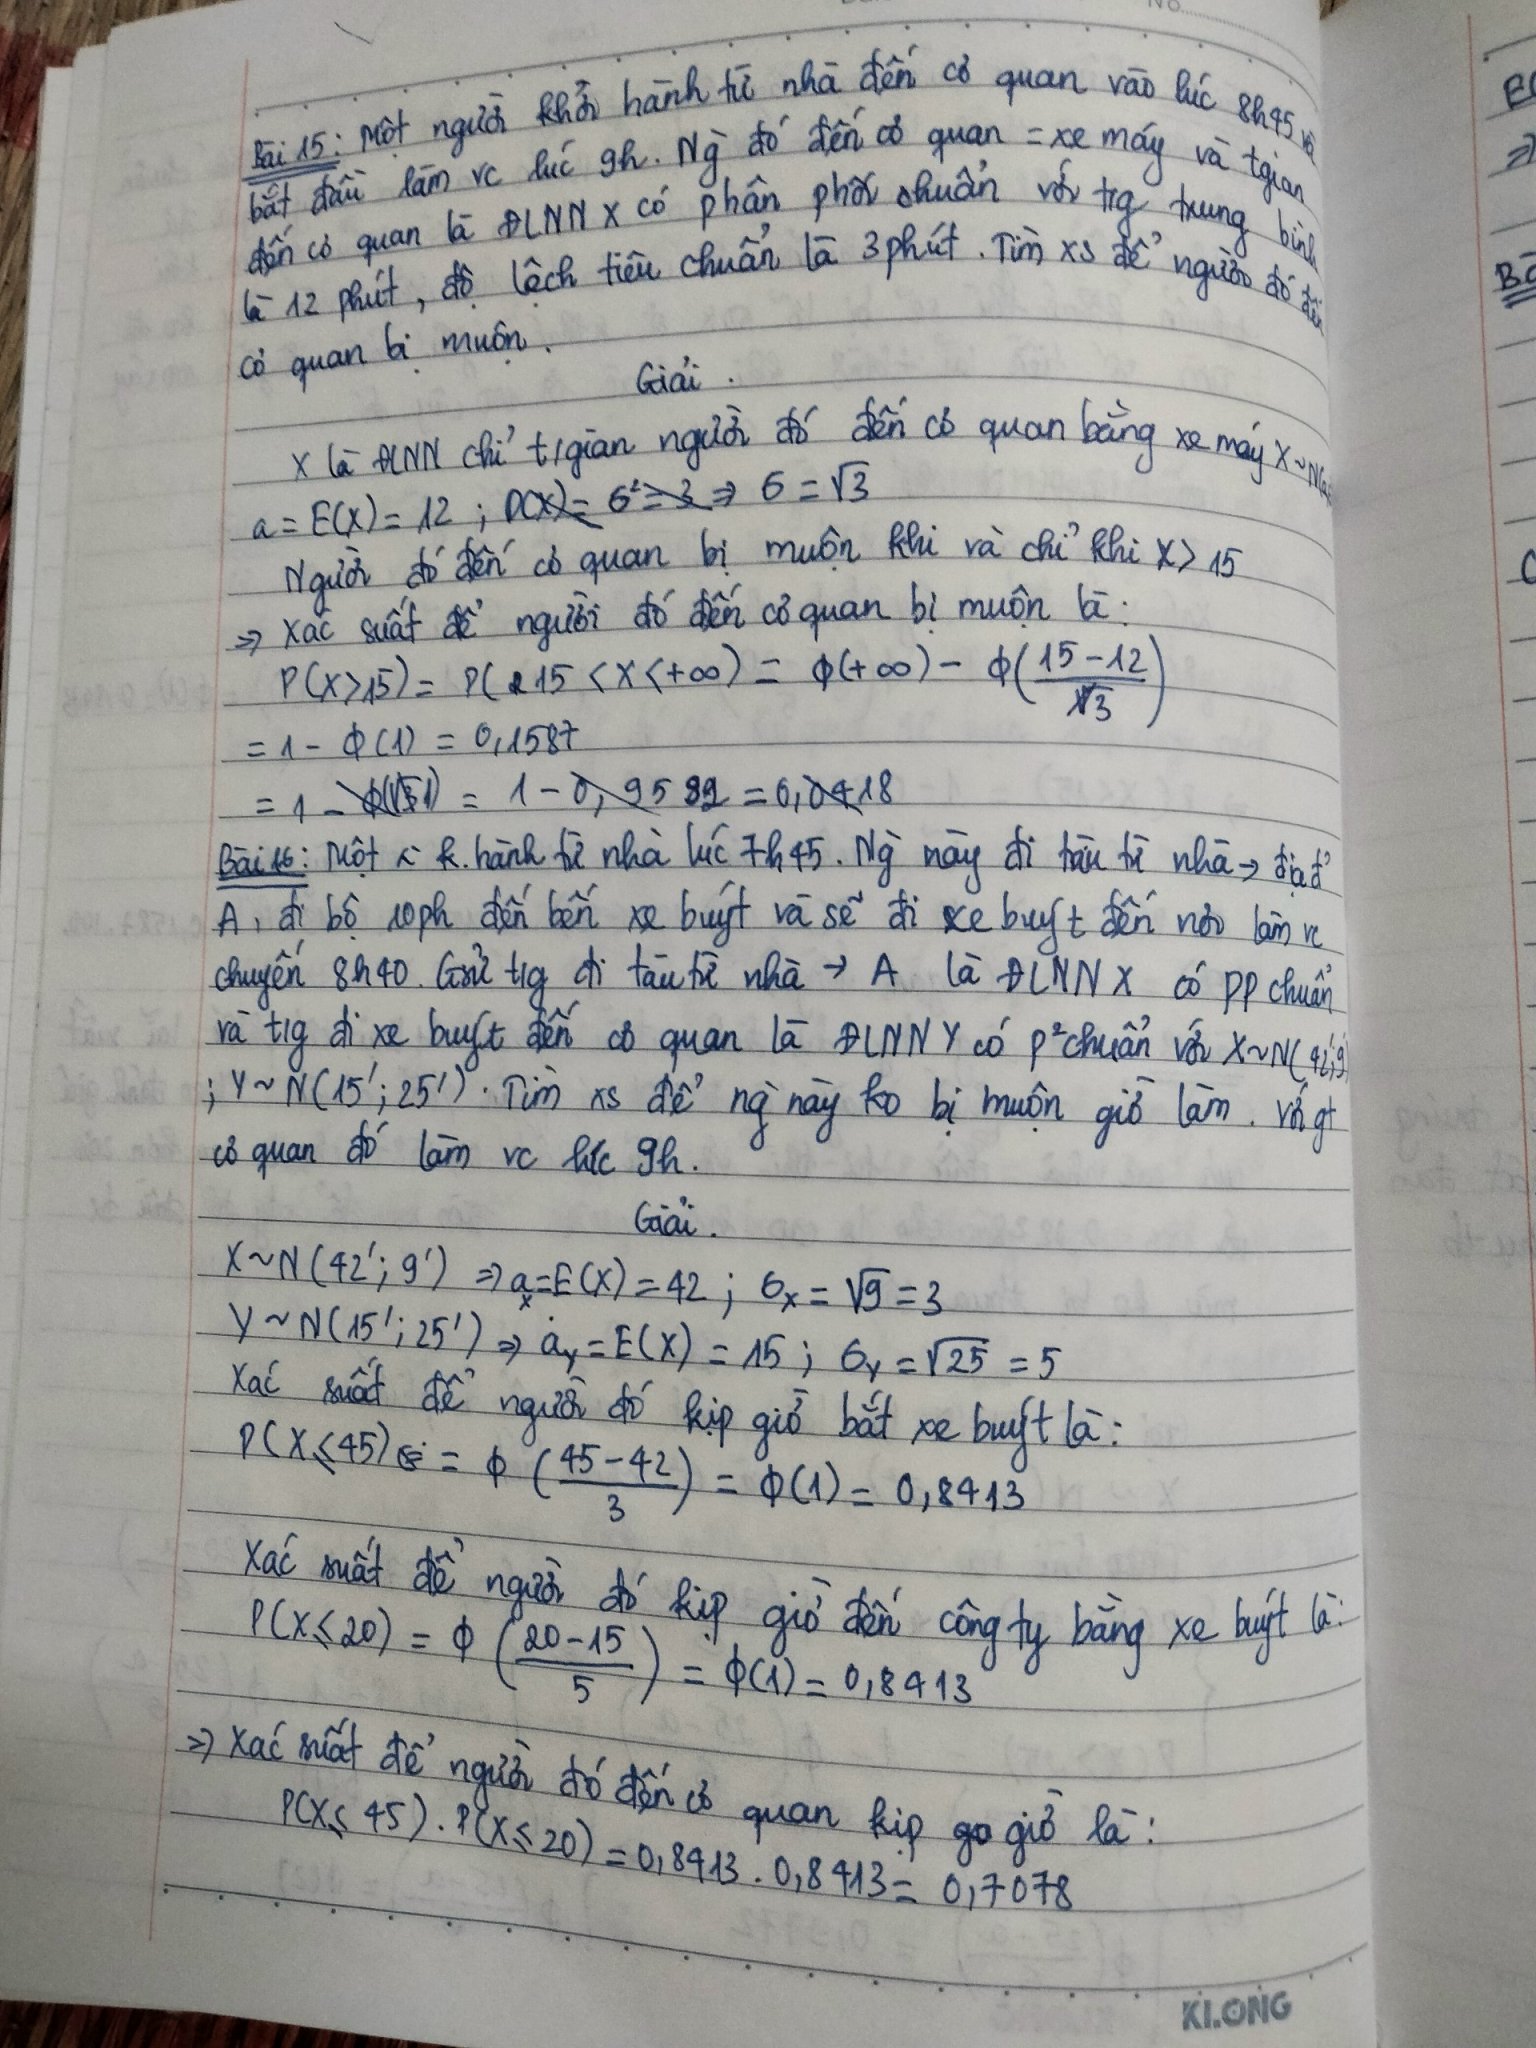 No
Bài 15: Một người khởi hành từ nhà đến cơ quan vào lúc 8h45 và
bắt đầu làm vc lúc 9h. Ng` đó đến cơ quan = xe máy và tgian
đến cơ quan là ĐLNN X có phân phối chuẩn với t/g trung bình
là 12 phút, độ lệch tiêu chuẩn là 3 phút. Tìm xs để người đó đến
cơ quan bị muộn.
Giải.
X là ĐLNN chỉ t/gian người đó đến cơ quan bằng xe máy X~N(a;
a = E(X) = 12 ; D(X) = σ² = 3 => σ = √3
Người đó đến cơ quan bị muộn khi và chỉ khi X > 15
=> Xác suất để người đó đến cơ quan bị muộn là:
P(X > 15) = P(15 < X < +∞) = Φ(+∞) - Φ((15 - 12)/3)
= 1 - Φ(1) = 0,1587
= 1 - Φ(√3) = 1 - 0,9582 = 0,0418
Bài 16: Một k. hành từ nhà lúc 7h45. Ng` này đi tàu từ nhà -> địa đ'
A, đi bộ 10ph đến bến xe buýt và sẽ đi xe buýt đến nơi làm vc
chuyến 8h40. Gsử t/g đi tàu từ nhà -> A là ĐLNN X có pp chuẩn
và t/g đi xe buýt đến cơ quan là ĐLNN Y có p² chuẩn với X~N(42';9'
; Y~N(15'; 25'). Tìm xs để ng` này ko bị muộn giờ làm. Với gt
cơ quan đó làm vc lúc 9h.
Giải.
X~N(42'; 9') => a_x = E(X) = 42 ; σ_X = √9 = 3
Y~N(15'; 25') => a_Y = E(X) = 15 ; σ_Y = √25 = 5
Xác suất để người đó kịp giờ bắt xe buýt là:
P(X ≤ 45) = Φ((45 - 42)/3) = Φ(1) = 0,8413
Xác suất để người đó kịp giờ đến công ty bằng xe buýt là:
P(X ≤ 20) = Φ((20 - 15)/5) = Φ(1) = 0,8413
=> Xác suất để người đó đến cơ quan kịp giờ là:
P(X ≤ 45) . P(X ≤ 20) = 0,8413 . 0,8413 = 0,7078
KLONG